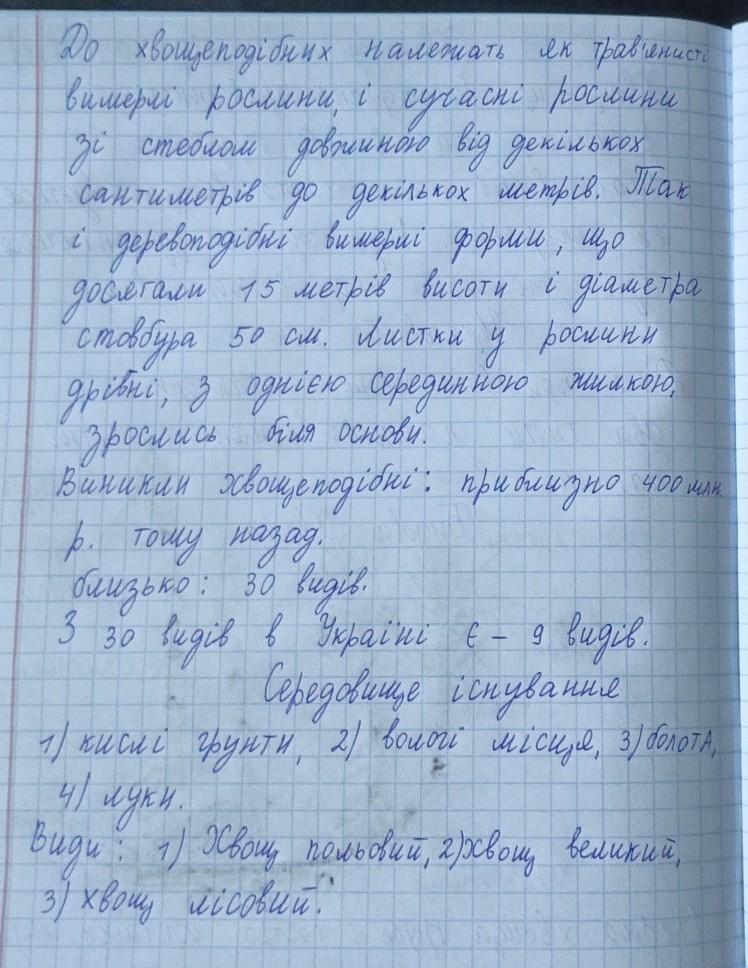 До хвощеподібних належать як трав'янисті
вимерлі рослини, і сучасні рослини
зі стеблом довжиною від декількох
сантиметрів до декількох метрів. Так
і деревоподібні вимерлі форми, що
досягали 15 метрів висоти і діаметра
стовбура 50 см. Листки у рослини
дрібні, з однією серединною жилкою,
зрослись біля основи.
Виникли хвощеподібні: приблизно 400 млн.
р. тому назад.
близько: 30 видів.
З 30 видів в Україні є - 9 видів.
Середовище існування
1) кислі грунти, 2) вологі місця, 3) болота,
4) луки.
Види: 1) Хвощ польовий, 2) хвощ великий,
3) хвощ лісовий.